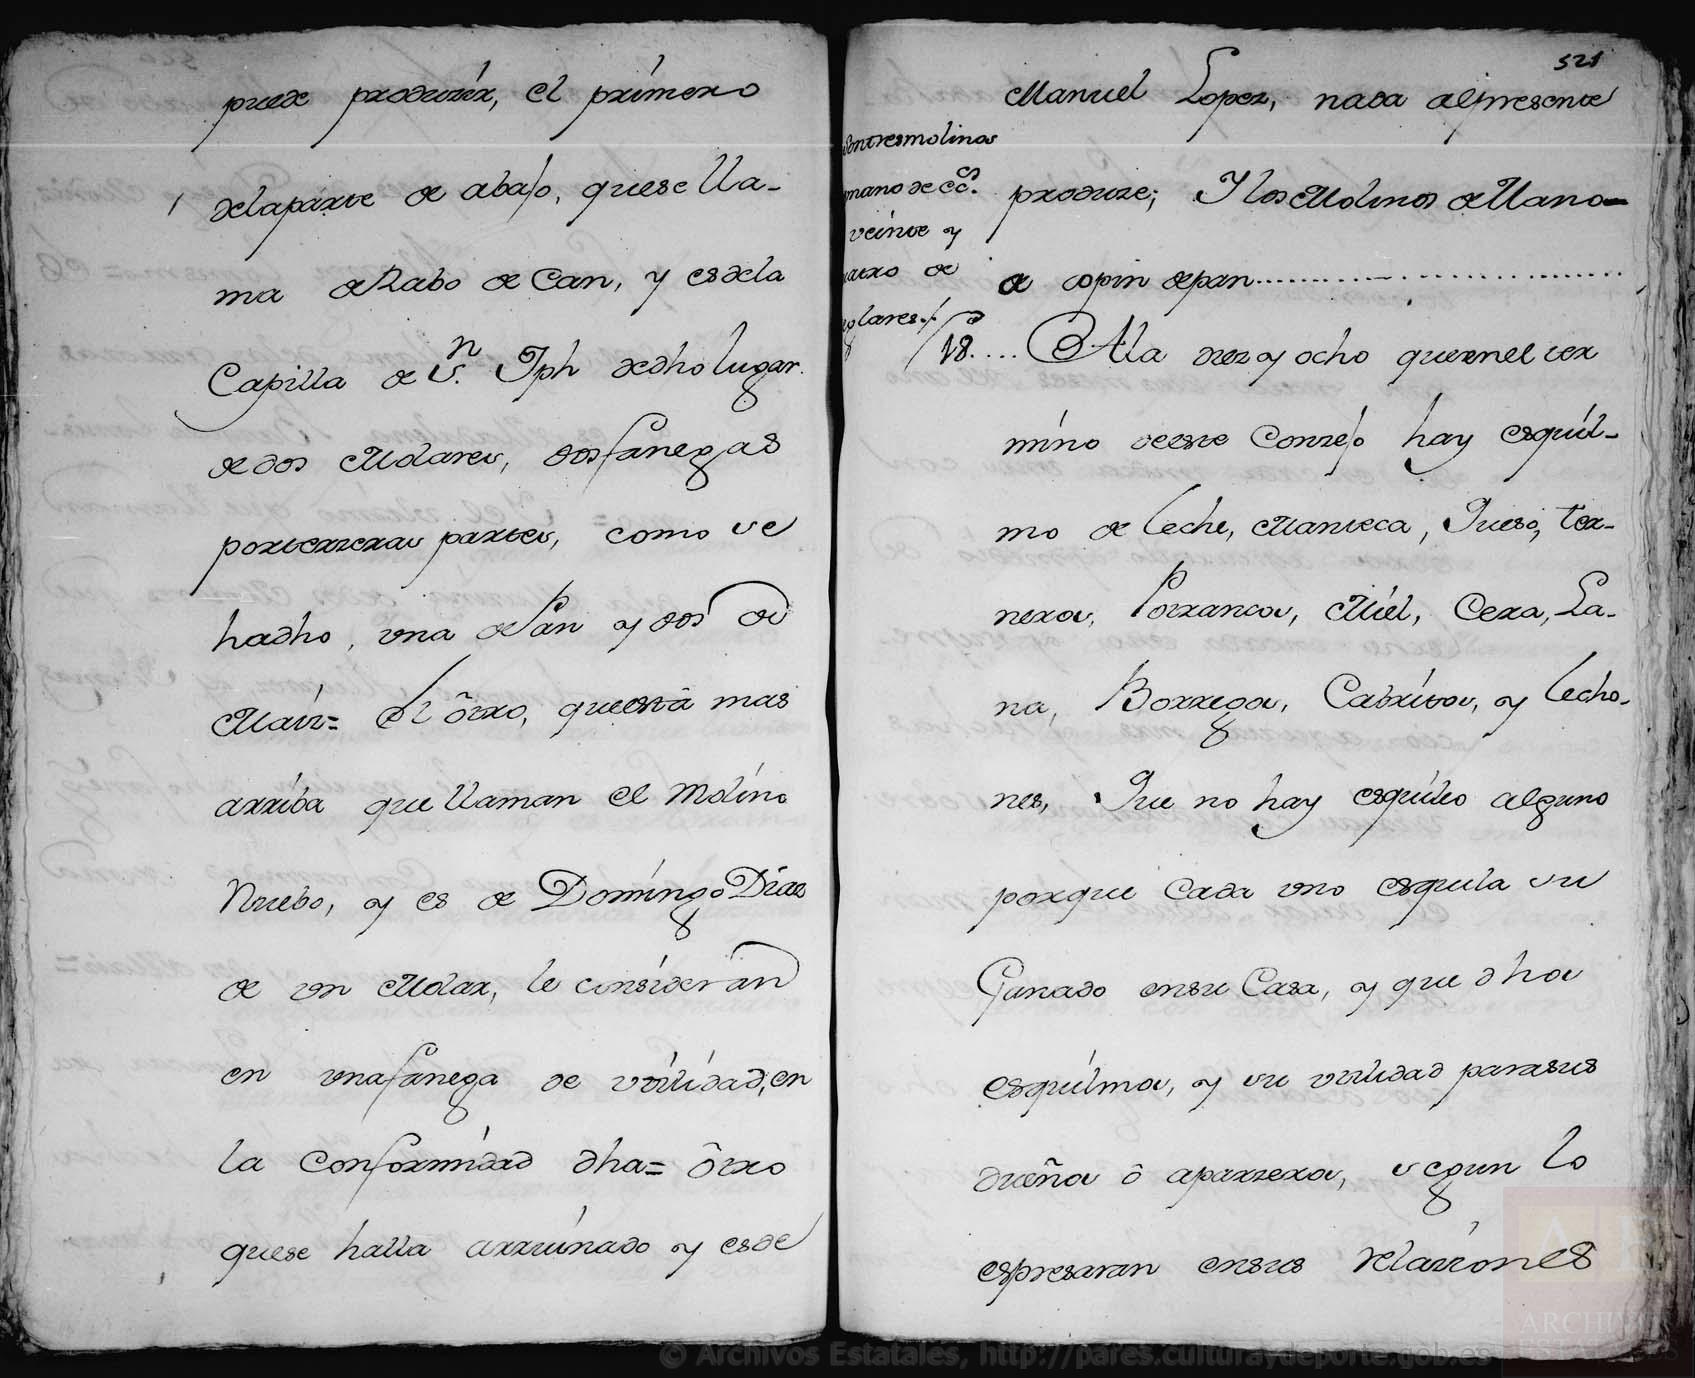 puede produzir, el primero
de la parte de abajo, que se lla-
ma de Rabo de Can, y es de la
Capilla de S.n Jph de dho lugar.
de dos Molares, dos fanegas
por terzeras partes, como se
ha dho, una de Pan y dos de
Maiz= El ôtro, que está mas
arriba que llaman el Molino
Nuebo, y es de Domingo Diaz
de un Molar, le consideran
en una fanega de utilidad, en
la conformidad dha= ôtro
que se halla arruinado y es de
521
Manuel Lopez, nada al presente
produze; Y los Molinos de Mano
a copin de pan
son tres molinos
mano de
veinte y
de
18.... A la diez y ocho que en el ter
mino de este Conzejo hay esquil-
mo de leche, Manteca, Queso, ter-
neros, Potrancos, Miel, Cera, La-
na, Borregos, Cabritos, y lecho-
nes, Que no hay esquileo alguno
porque Cada uno esquila su
Ganado en su Casa, y que dhos
esquilmos, y su utilidad para sus
dueños ô aparzeros, segun lo
espresaran en sus relaziones
© Archivos Estatales, http://pares.culturaydeporte.gob.es
AE
ARCHIVOS
ESTATALES